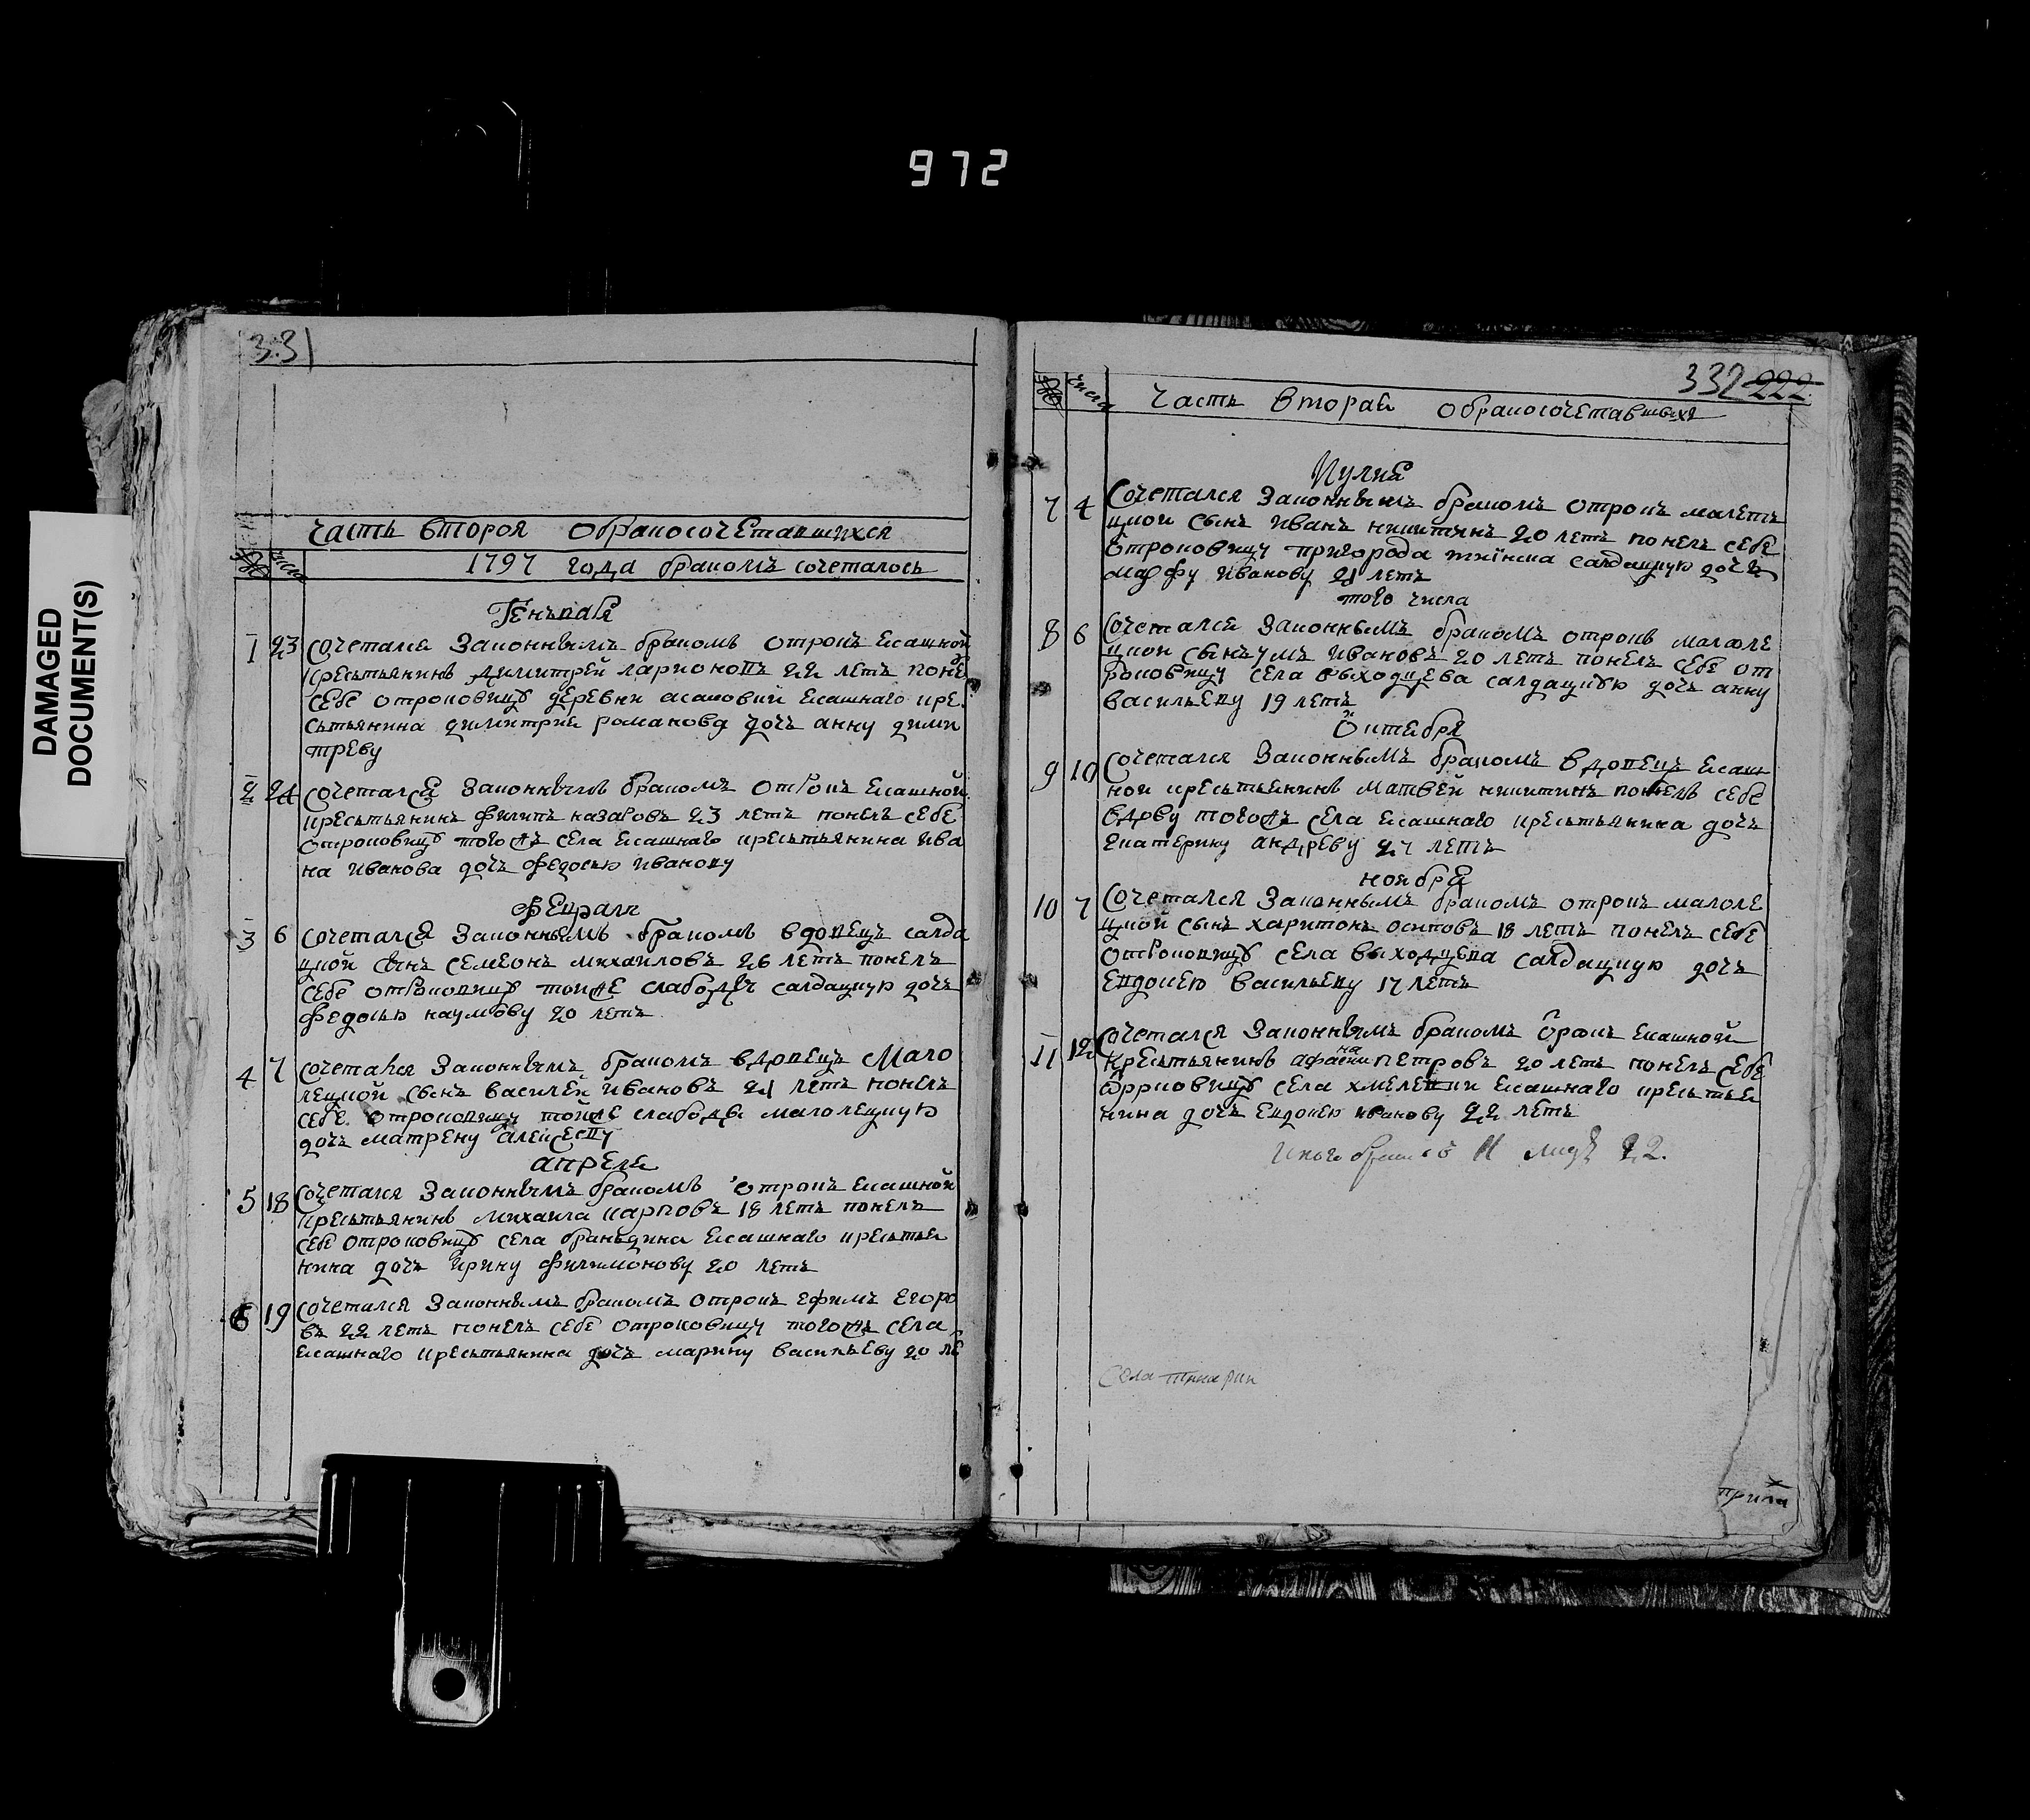 972
DAMAGED
DOCUMENT(S)
331
часть вторая обракосочетавшихся
№ числа
1797 года бракомъ сочеталось
Генъваря
1 23 сочетался Законнымъ бракомъ отрокъ Ясашной
крестьянинъ димитрей ларионовъ 22 летъ поне
себе отроковицу деревни асановки ясашнаго кре
стьянина димитрия романова дочь анну дими
треву
2 24 сочетался Законнымъ бракомъ отрокъ Ясашной
крестьянинъ филипъ назаровъ 23 летъ понелъ себе
отроковицу тогожъ села ясашнаго крестьянина ива
на иванова дочь федосью иванову
февраля
3 6 сочетался Законнымъ бракомъ вдовецъ салда
цкой сынъ семеонъ михаиловъ 26 летъ понелъ
себе отроковицу тойже слабоды салдацкую дочь
федосью наумову 20 летъ
4 7 сочетался Законнымъ бракомъ вдовецъ Мало
лецкой сынъ василей ивановъ 21 летъ понелъ
себе отроковицу тойже слабоды малолецкую
дочь матрену алексееву
апреля
5 18 Сочетался Законнымъ бракомъ отрокъ ясашной
крестьянинъ михаила карповъ 18 летъ понелъ
себе отроковицу села ясашнаго крестья
нина дочь ирину филимонову 20 летъ
6 19 сочетался Законнымъ бракомъ отрокъ ефимъ егоро
въ 22 летъ понелъ себе отроковицу тогожъ села
ясашнаго крестьянина дочь марину васильеву 20 ле
332 222
№ числа Часть вторая обракосочетавшихся
Иулия
7 4 Сочетался Законнымъ бракомъ отрокъ малеть
цкой сынъ иванъ никитинъ 20 летъ понелъ себе
отроковицу пригорода тиинска салдацкую дочь
марфу иванову 21 летъ
того числа
8 6 Сочетался Законнымъ бракомъ отрокъ малоле
цкой сынъ ивановъ 20 летъ понелъ себе от
роковицу села выходцева салдацкую дочь анну
васильеву 19 летъ
Октября
9 10 Сочетался Законнымъ бракомъ вдовецъ ясаш
ной крестьянинъ матвей никитинъ понелъ себе
вдову тогожъ села ясашнаго крестьянина дочь
екатерину андреву 27 летъ
ноября
10 7 Сочетался Законнымъ бракомъ отрокъ малоле
цкой сынъ харитонъ осиповъ 18 летъ понелъ себе
отроковицу села выходцева салдацкую дочь
евдокею васильеву 17 летъ
11 12 Сочетался Законнымъ бракомъ ясашной
крестьянинъ афанаси петровъ 20 летъ понелъ себе
села хмелевки ясашнаго крестья
нина дочь евдокею иванову 22 летъ
браковъ 11 лицъ 22.